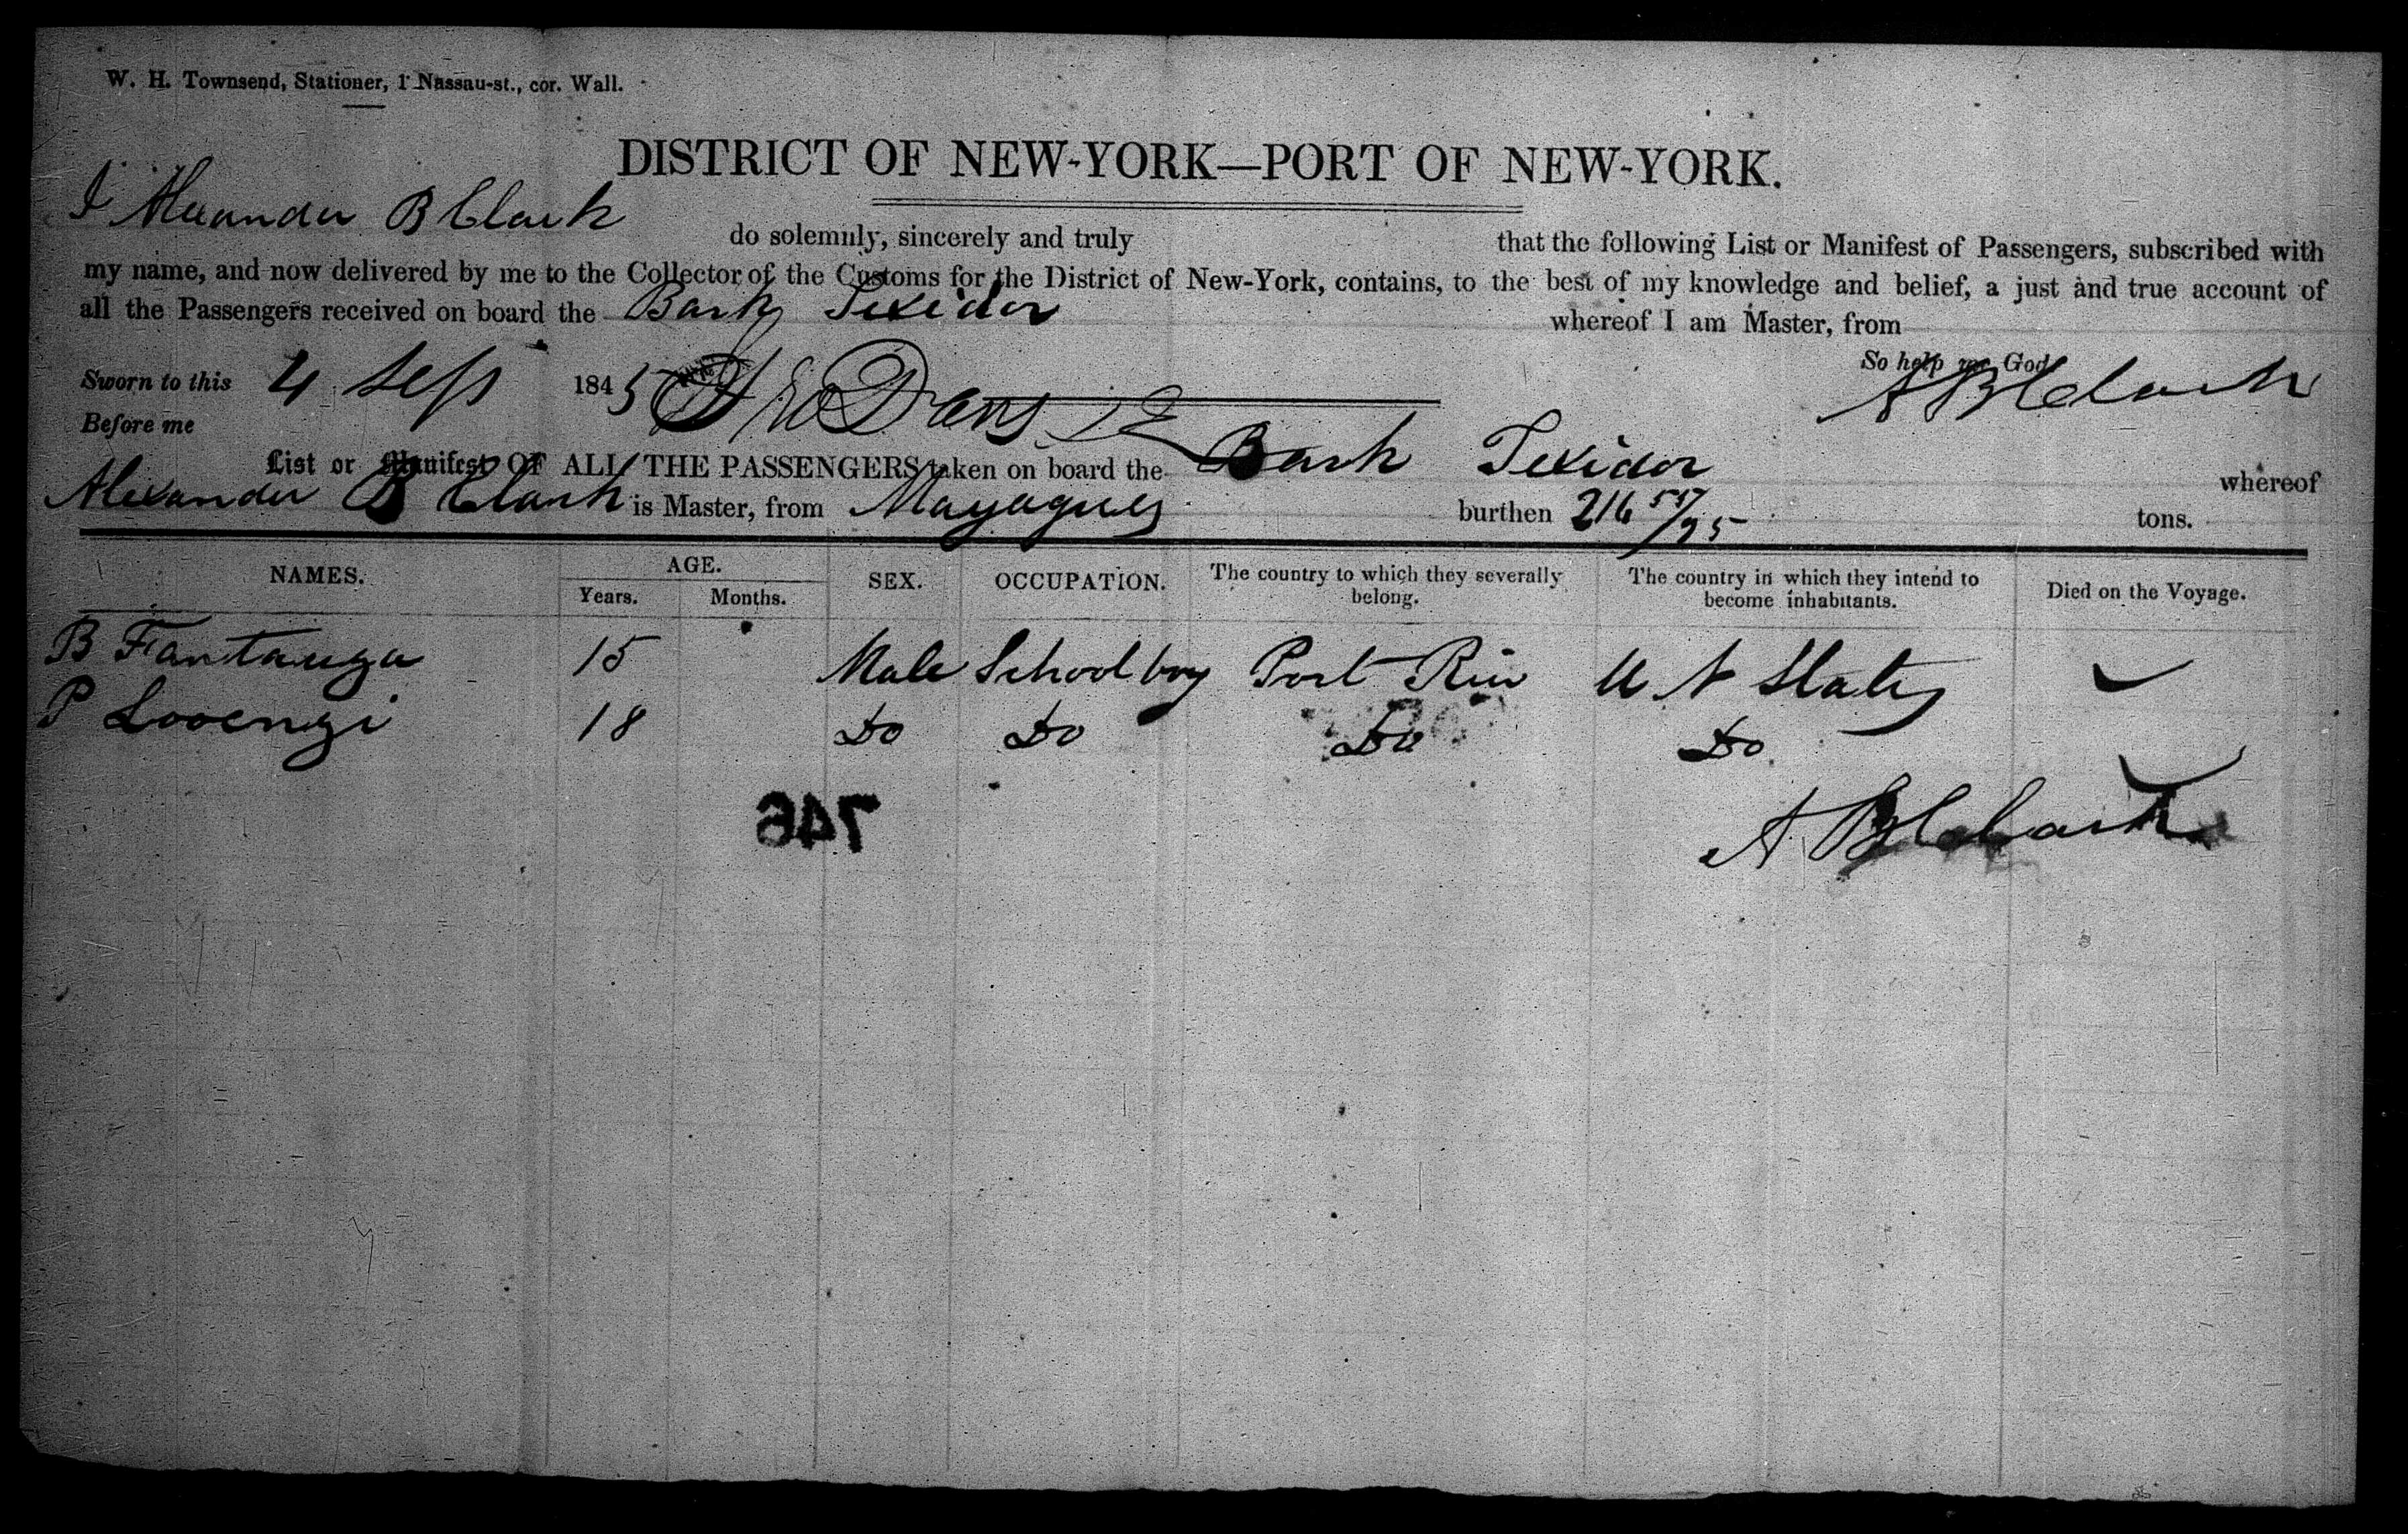 W. H. Townsend, Stationer, 1 Nassau-st., cor. Wall.
DISTRICT OF NEW-YORK—PORT OF NEW-YORK.
I Alexander B Clark do solemnly, sincerely and truly that the following List or Manifest of Passengers, subscribed with
my name, and now delivered by me to the Collector of the Customs for the District of New-York, contains, to the best of my knowledge and belief, a just and true account of
all the Passengers received on board the Bark Texidor whereof I am Master, from
So help me God
Sworn to this 4 Sept 1845 A B Clark
Before me
List or Manifest OF ALL THE PASSENGERS taken on board the Bark Texidor whereof
Alexander B Clark is Master, from Mayagues burthen 216 55/95 tons.
NAMES. AGE. SEX. OCCUPATION. The country to which they severally belong. The country in which they intend to become inhabitants. Died on the Voyage.
Years. Months.
B Fantauga 15 Male School boy Port Rico U N States
P Looengi 18 Do Do Do Do
746
A B Clark